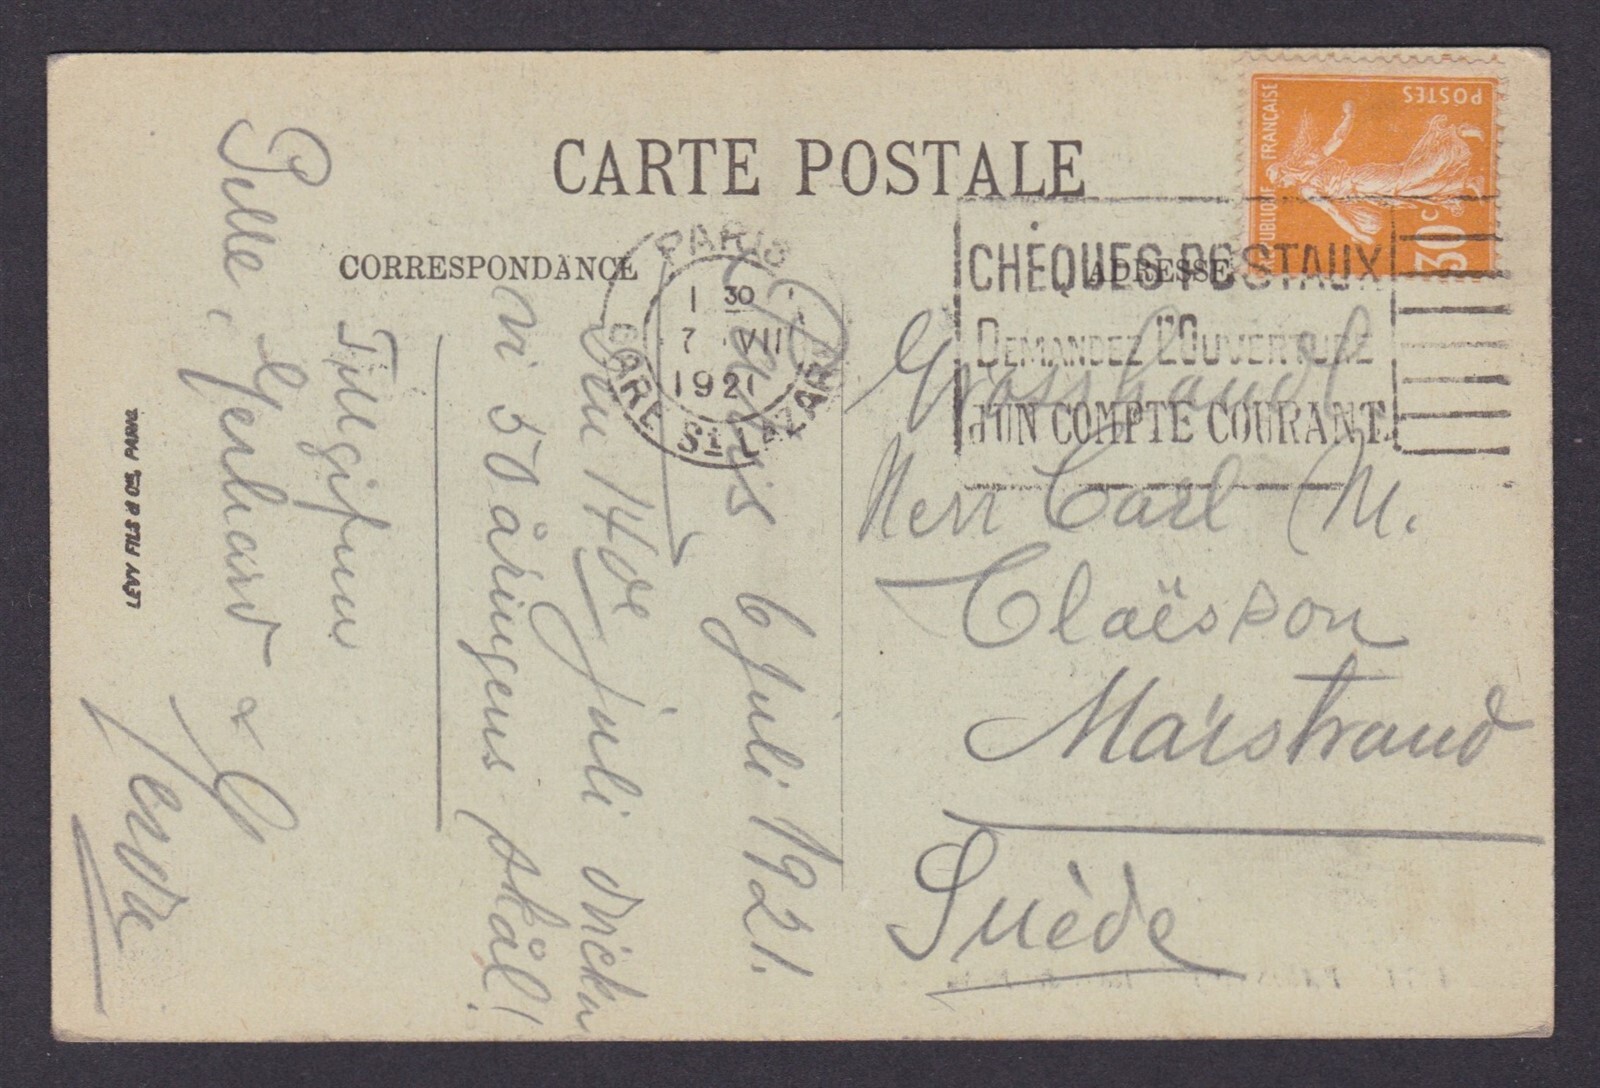 CARTE POSTALE
CORRESPONDANCE
ADRESSE
RÉPUBLIQUE FRANÇAISE
POSTES
30c
PARIS
GARE St LAZARE
1 30
7 VII
1921
CHÈQUES POSTAUX
DEMANDEZ L'OUVERTURE
d'UN COMPTE COURANT.
Paris 6 Juli 1921.
Den 14de juli dricka
vi 50 åringens skål!
Tillgifna
Pelle, Gerhard &
Gerda
Grosshandl
Herr Carl M.
Claëson
Marstrand
Suède
LÉVY FILS & Cie, PARIS